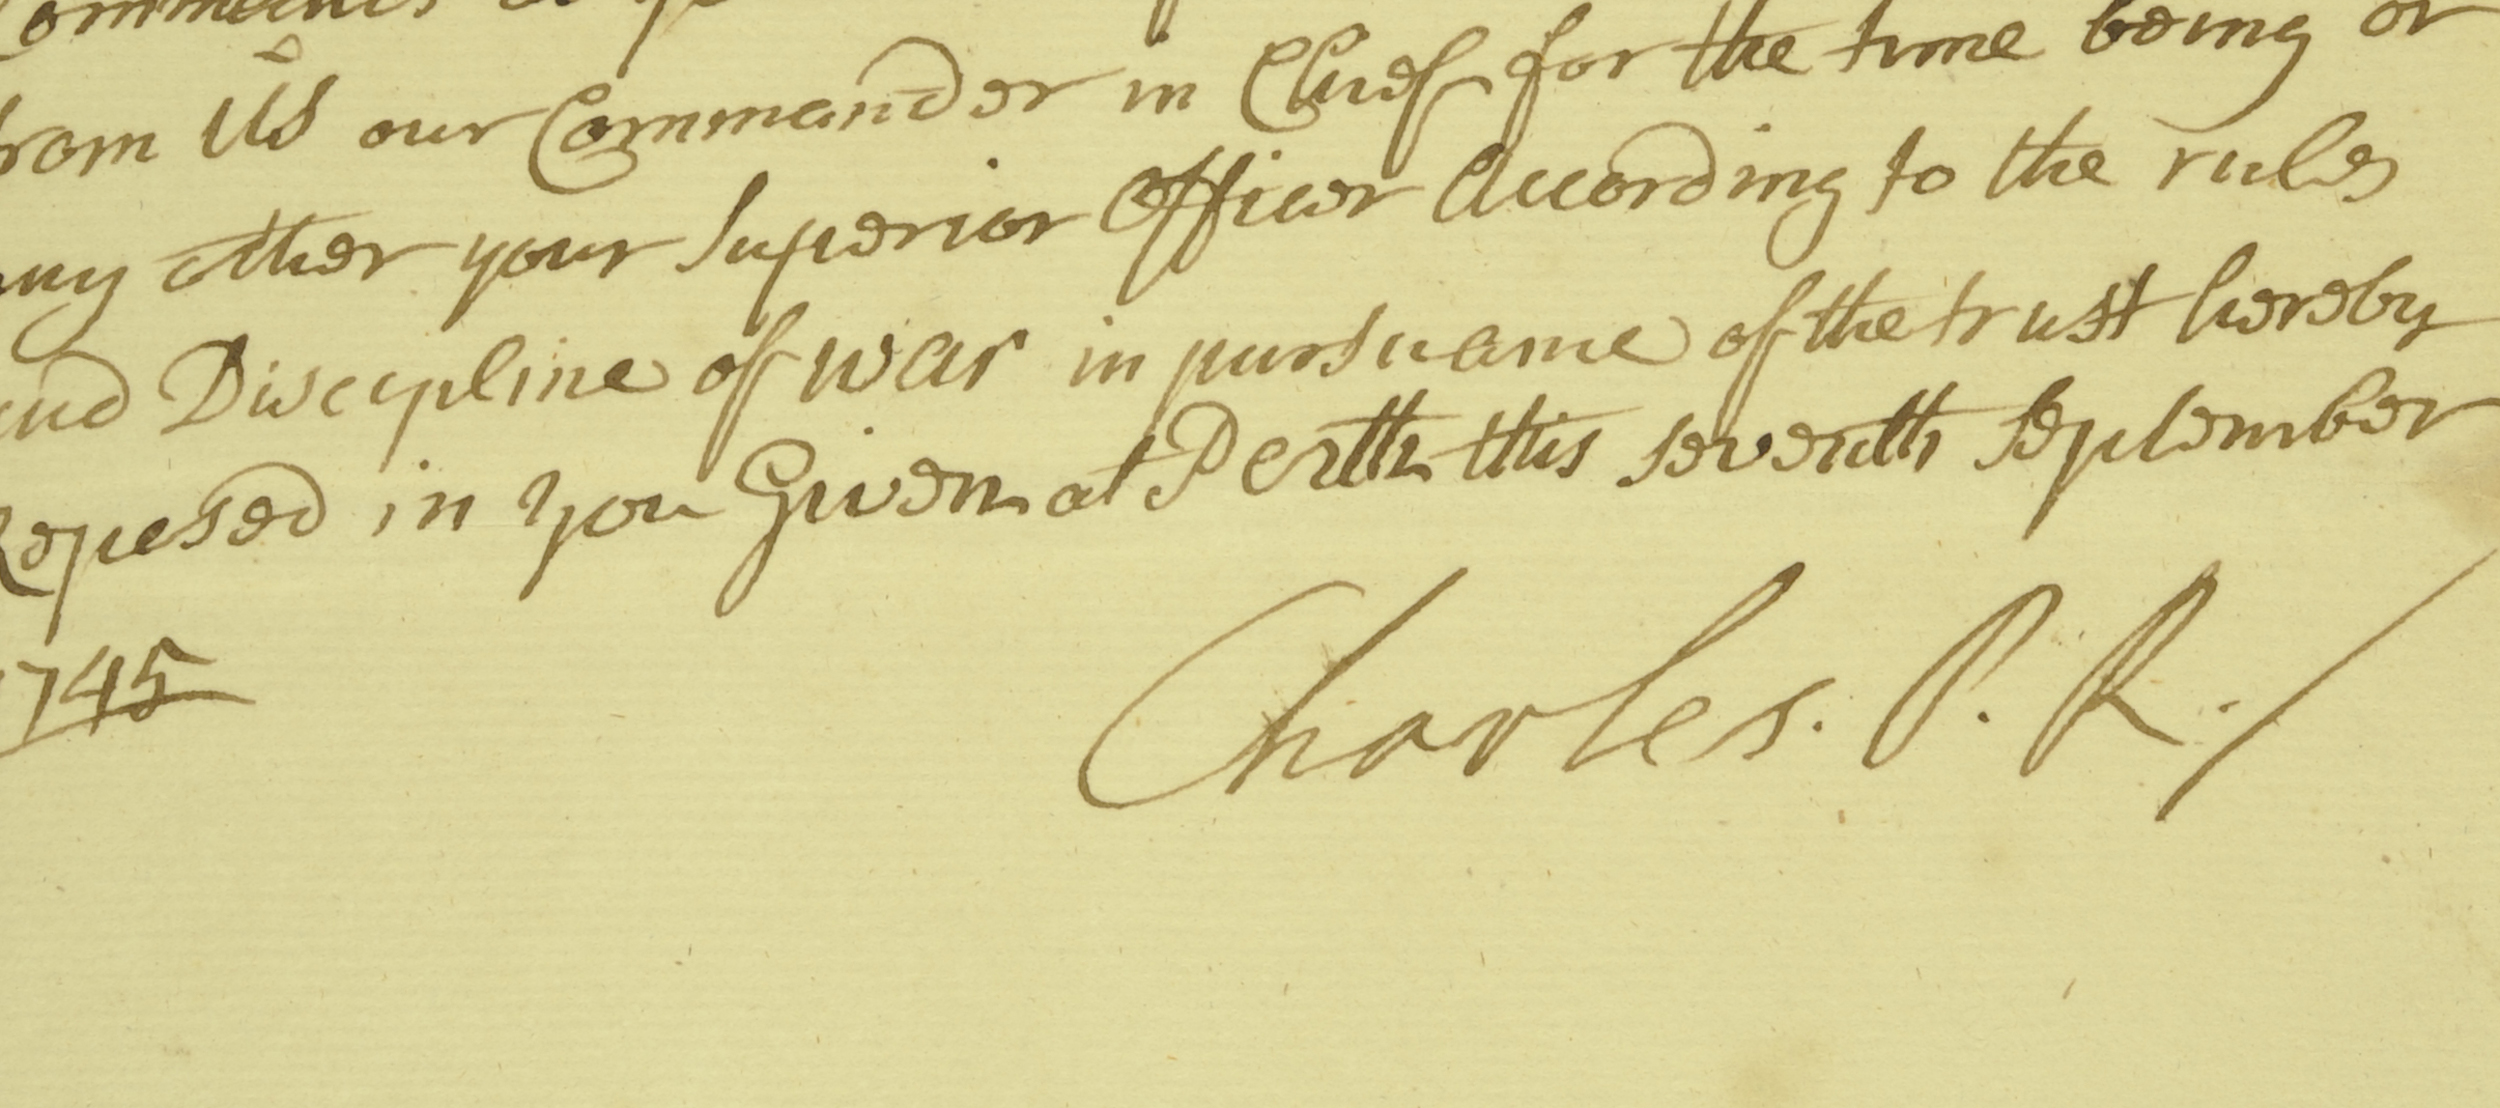 from Us our Commander in Chief for the time being or
any other your Superior Officer According to the rules
and Discipline of War in pursuance of the trust hereby
Reposed in you Given at Perth this seventh september
1745
Charles. P. R.